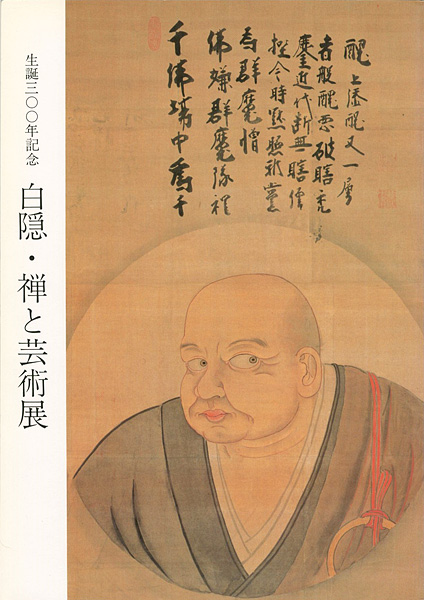 生誕三〇〇年記念
白隠・禅と芸術展
千佛場中為千
佛嫌群魔隊裡
為群魔憎
挫今時黙照邪黨
鏖近代断無瞎僧
者般醜悪破瞎禿
醜上添醜又一層